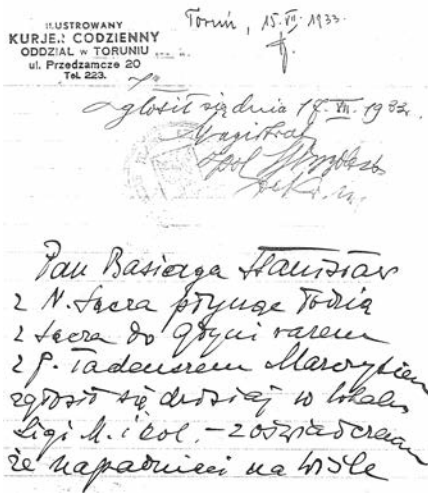 ILUSTROWANY
KURJER CODZIENNY
ODDZIAŁ w TORUNIU
ul. Przedzamcze 20
Tel. 223.
Toruń, 15.VII.1933.
Zgłosił się dnia 17.VII.1933.
Magistrat
Pan Basiaga Stanisław
z N. Sącza płynąc łodzią
z Sącza do Gdyni razem
z p. Tadeuszem
zgłosił się dzisiaj w lokalu
Ligi M. i Kol. – z oświadczeniem
że napadnięci na Wiśle